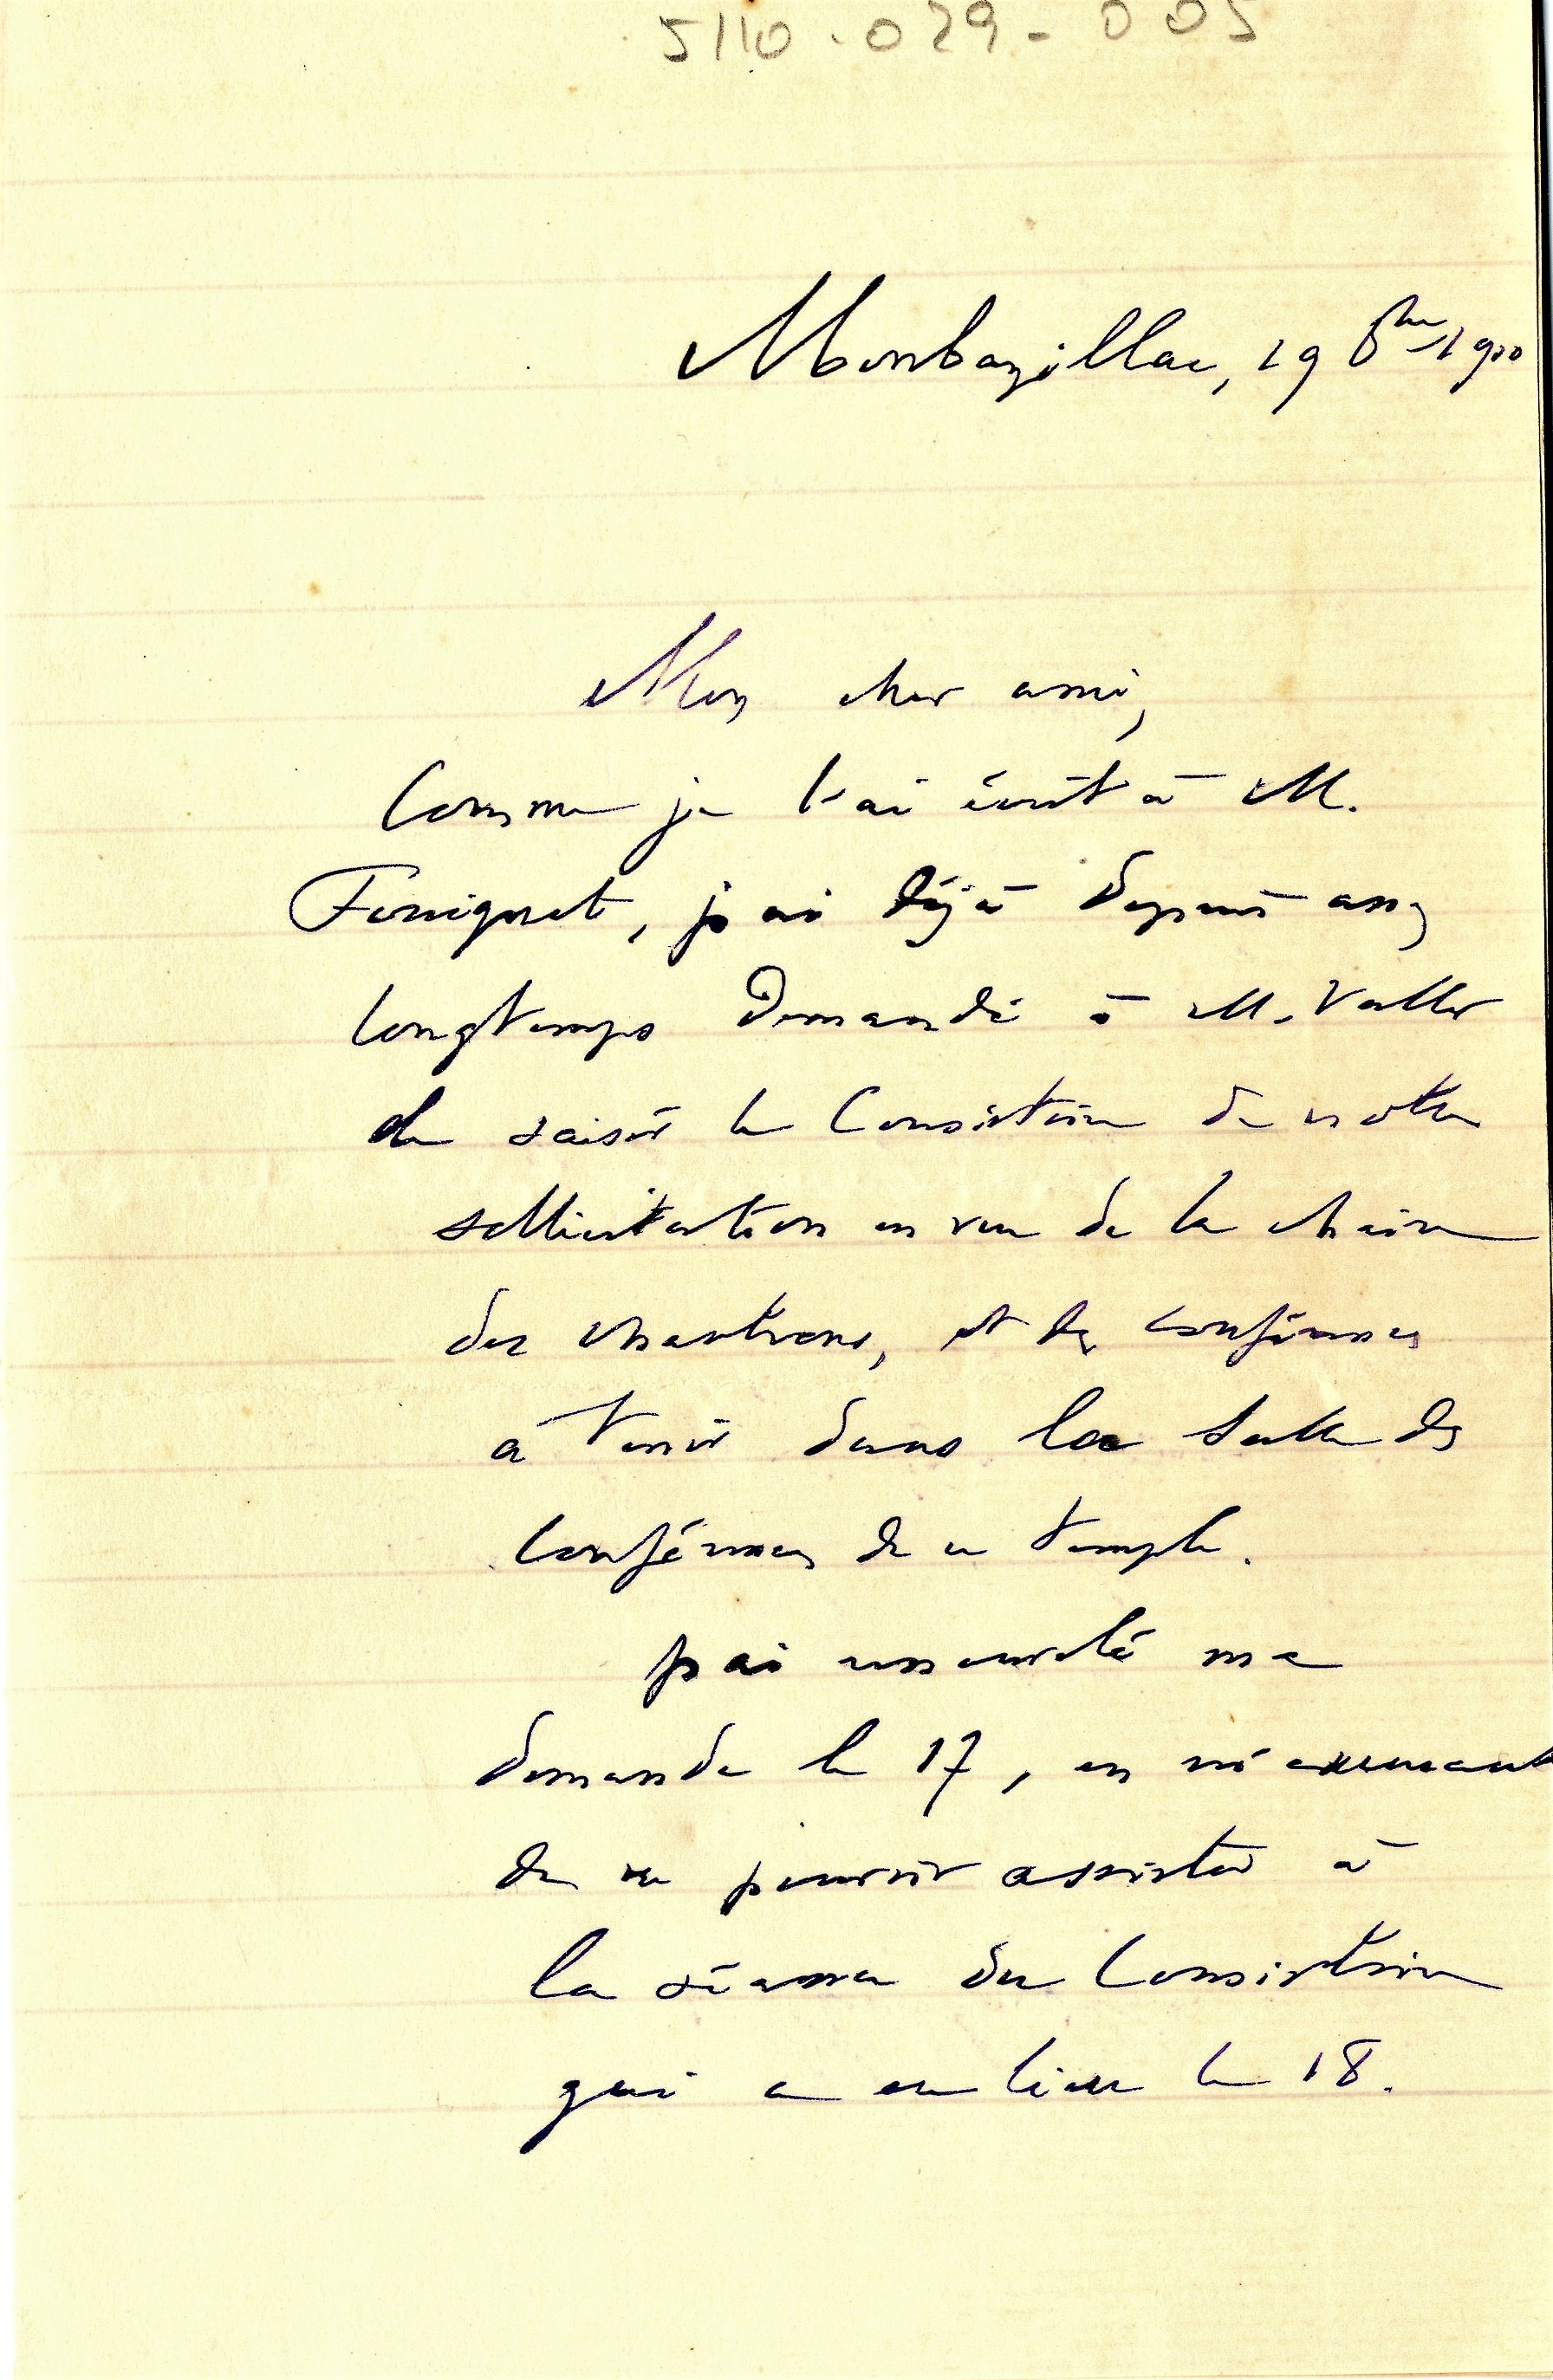 5110.029-005
Monbazillac, 19 8bre 1900
Mon cher ami,
Comme je l'ai écrit à M.
j'ai déjà depuis assez
longtemps demandé à M.
de saisir le Consistoire de notre
sollicitation en vue de la chaire
des Chartrons, et des conférences
à tenir dans la salle des
conférences de ce temple.
J'ai renouvelé ma
demande le 17, en m'excusant
de ne pouvoir assister à
la séance du Consistoire
qui a eu lieu le 18.